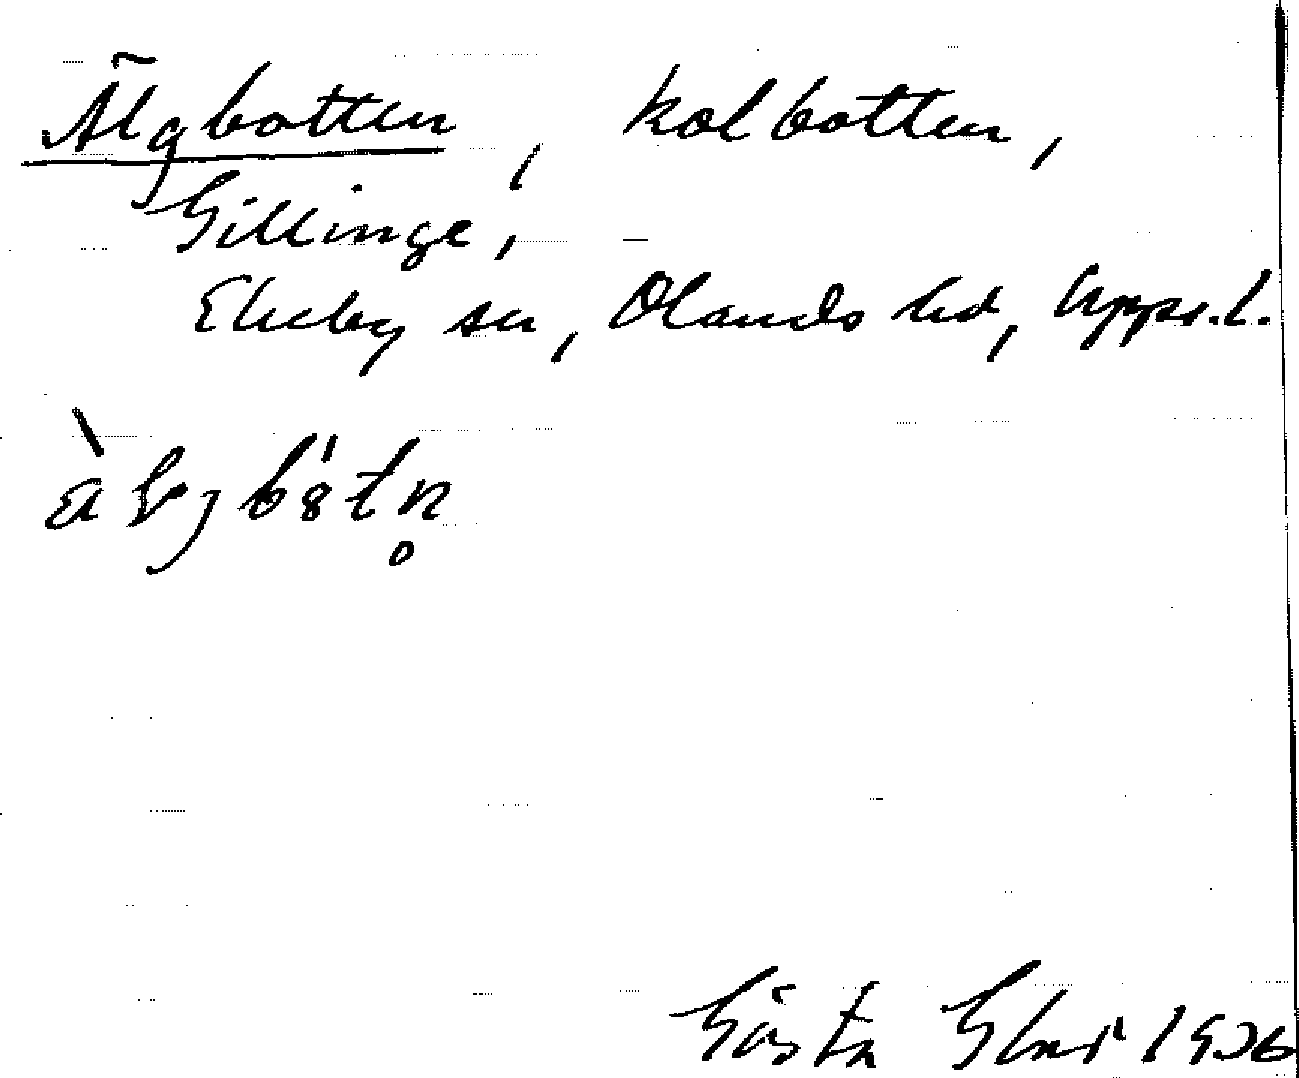 Älgbotten, kolbotten,
Gillinge,
Ekeby sn, Olands hd, Upps.l.
Gösta 1936